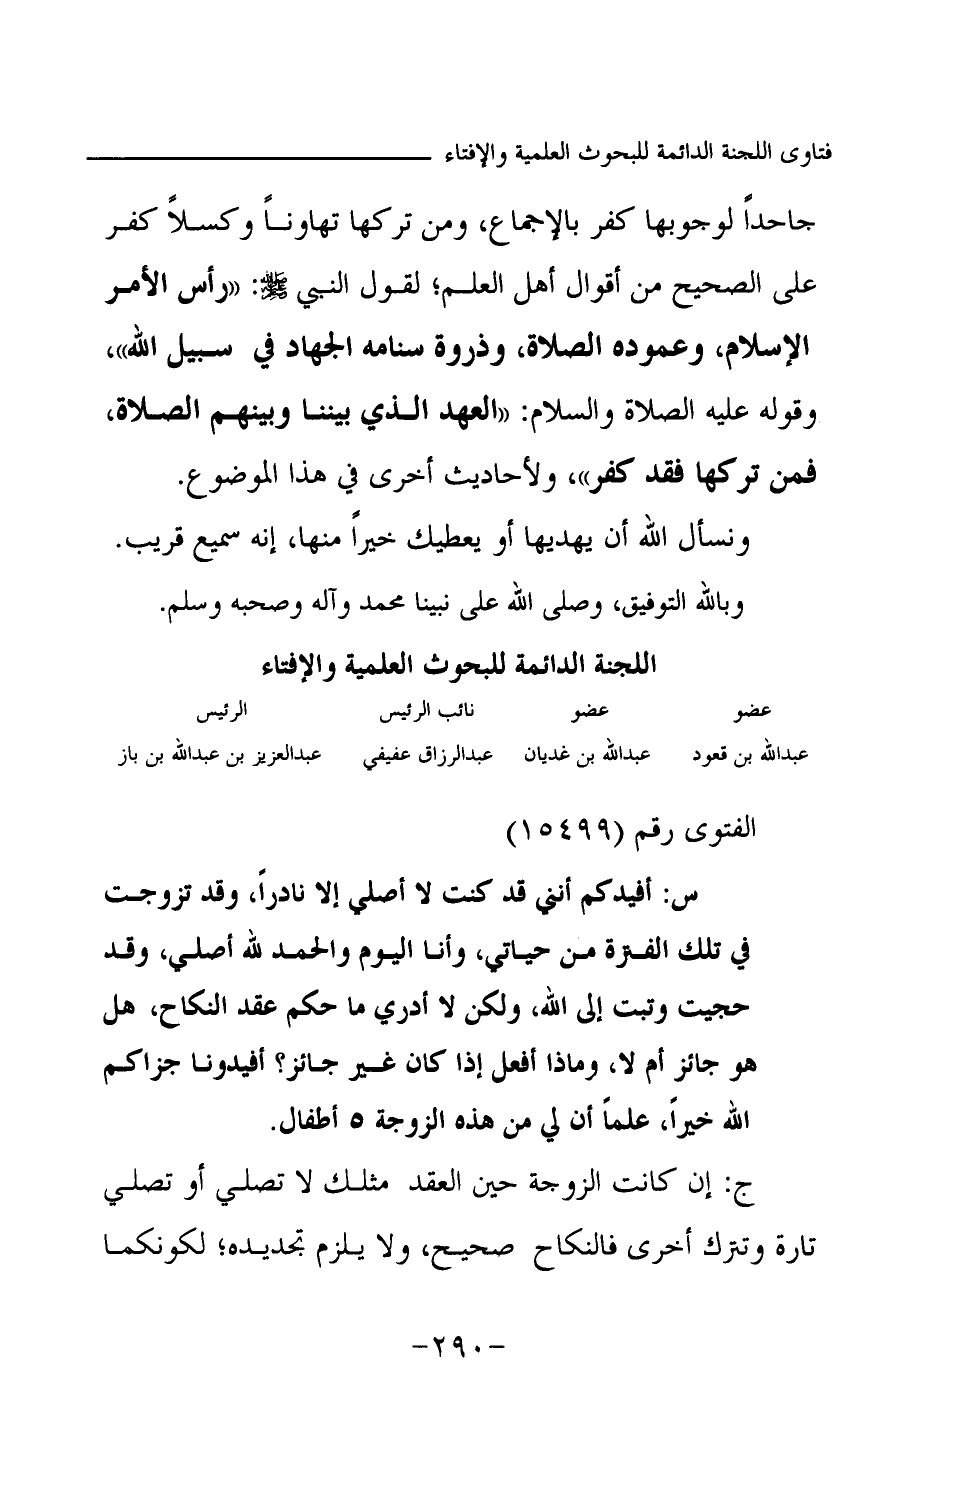 فتاوى اللجنة الدائمة للبحوث العلمية والإفتاء
جاحداً لوجوبها كفر بالإجماع، ومن تركها تهاونـاً وكسـلاً كفـر
على الصحيح من أقوال أهل العلـم؛ لقـول النـبي ﷺ: «رأس الأمـر
الإسلام، وعموده الصلاة، وذروة سنامه الجهاد في سـبيل الله»،
وقوله عليه الصلاة والسلام: «العهد الـذي بيننـا وبينهـم الصـلاة،
فمن تركها فقد كفر»، ولأحاديث أخرى في هذا الموضوع.
ونسأل الله أن يهديها أو يعطيك خيراً منها، إنه سميع قريب.
وبالله التوفيق، وصلى الله على نبينا محمد وآله وصحبه وسلم.
اللجنة الدائمة للبحوث العلمية والإفتاء
عضو عضو نائب الرئيس الرئيس
عبدالله بن قعود عبدالله بن غديان عبدالرزاق عفيفي عبدالعزيز بن عبدالله بن باز
الفتوى رقم (١٥٤٩٩)
س: أفيدكم أنني قد كنت لا أصلي إلا نادراً، وقد تزوجـت
في تلك الفـترة مـن حيـاتي، وأنـا اليـوم والحمـد لله أصلـي، وقـد
حجيت وتبت إلى الله، ولكن لا أدري ما حكم عقد النكاح، هل
هو جائز أم لا، وماذا أفعل إذا كان غـير جـائز؟ أفيدونـا جزاكـم
الله خيراً، علماً أن لي من هذه الزوجة ٥ أطفال.
ج: إن كانت الزوجة حين العقد مثلـك لا تصلـي أو تصلـي
تارة وتترك أخرى فالنكاح صحيـح، ولا يـلزم تجديـده؛ لكونكمـا
-٢٩٠-